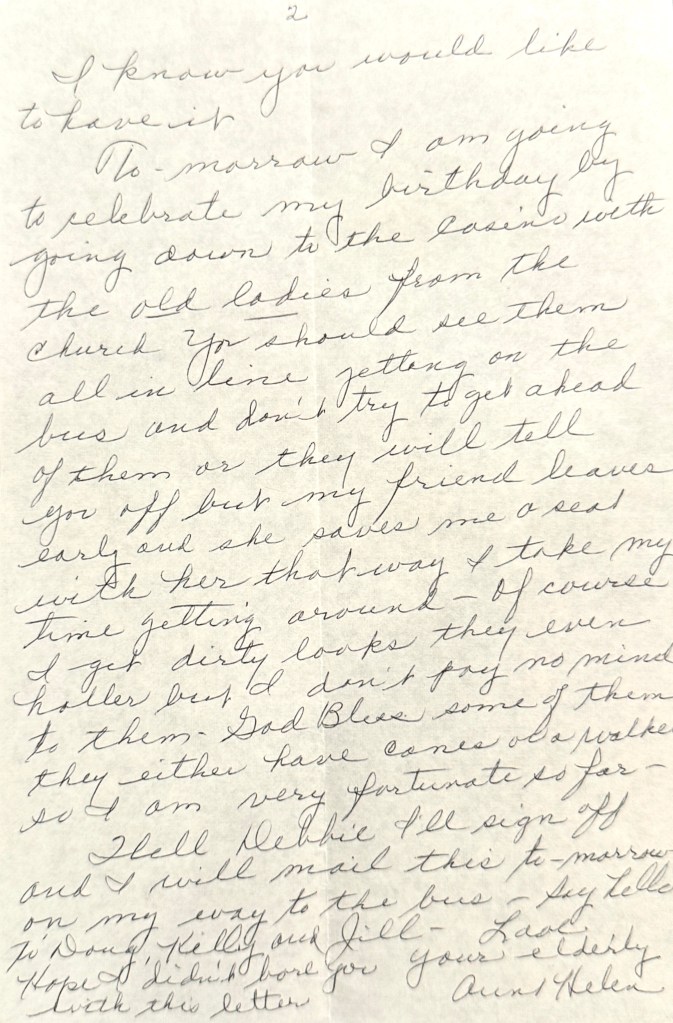 2
I know you would like
to have it
To-morrow I am going
to celebrate my birthday by
going down to the Casino with
the old ladies from the
church You should see them
all in line getting on the
bus and don't try to get ahead
of them or they will tell
you off but my friend leaves
early and she saves me a seat
with her that way I take my
time getting around - of course
I get dirty looks they even
holler but I don't pay no mind
to them - God Bless some of them
they either have canes or a walke
so I am very fortunate so far -
Well Debbie I'll sign off
and I will mail this to-morrow
on my way to the bus - Say Hello
to Doug, Kelly and Jill - Love
Hope I didn't bore you your elderly
with this letter Aunt Helen